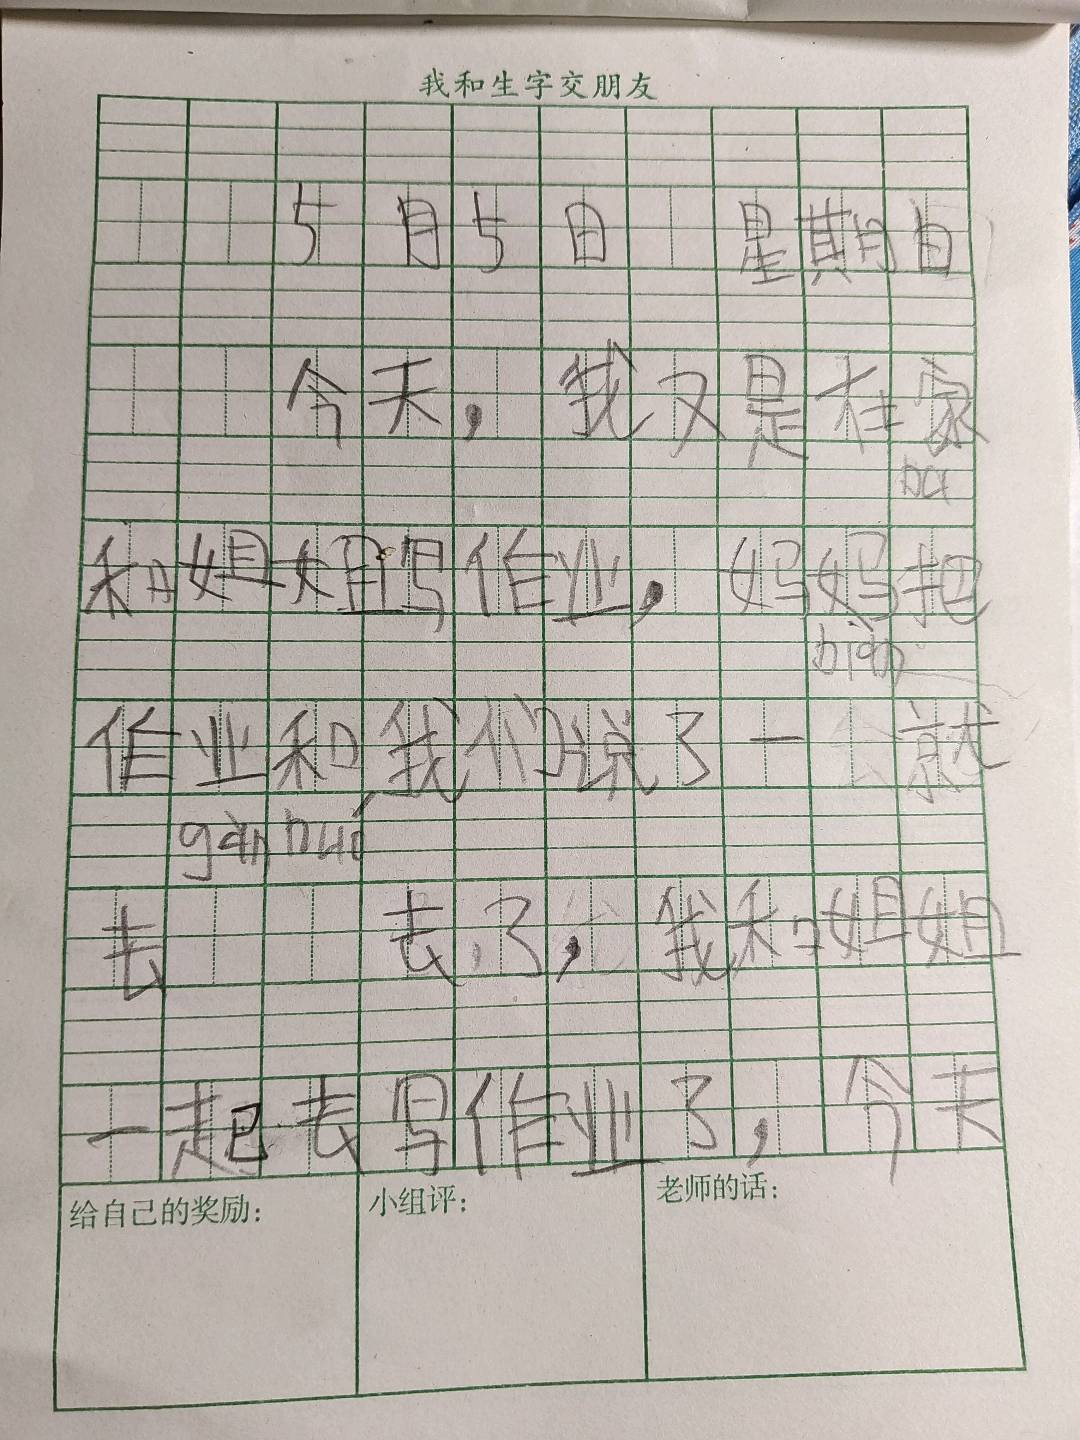 我和生字交朋友
5月5日 星期日
今天，我又是在家
bǎ
和姐姐写作业，妈妈把
biàn
作业和我们说了一 就
gàn huó
去 去了，我和姐姐
一起去写作业了，今天
给自己的奖励： 小组评： 老师的话：